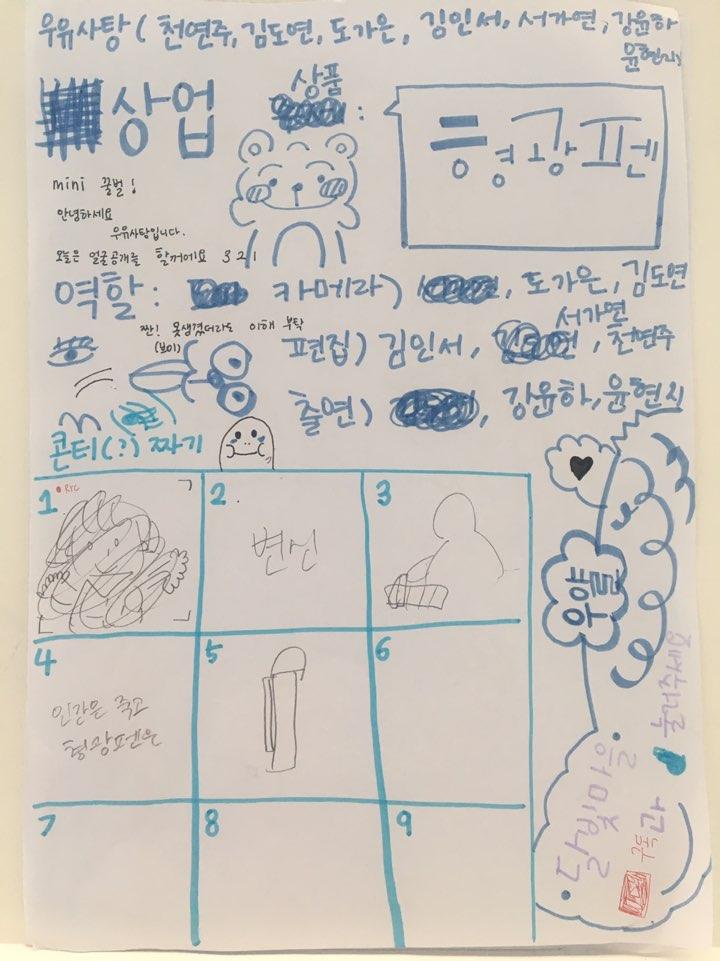 우유사탕 ( 천연주, 김도연, 도가은, 김인서, 서가연, 강윤하
윤현지)
상업
상품 :
형광펜
mini 꿀벌!
안녕하세요
우유사탕입니다.
오늘은 얼굴공개를 할꺼에요 3 2 1
역할 : 카메라) , 도가은, 김도연
짠! 못생겼더라도 이해 부탁
(보이)
서가연
편집) 김인서, , 천연주
출연) , 강윤하, 윤현지
콘티(?) 짜기
1 REC
2
변신
3
4
인간은 죽고
형광펜은
5
6
7
8
9
우얄
달빛마을
구독과
눌러주세요